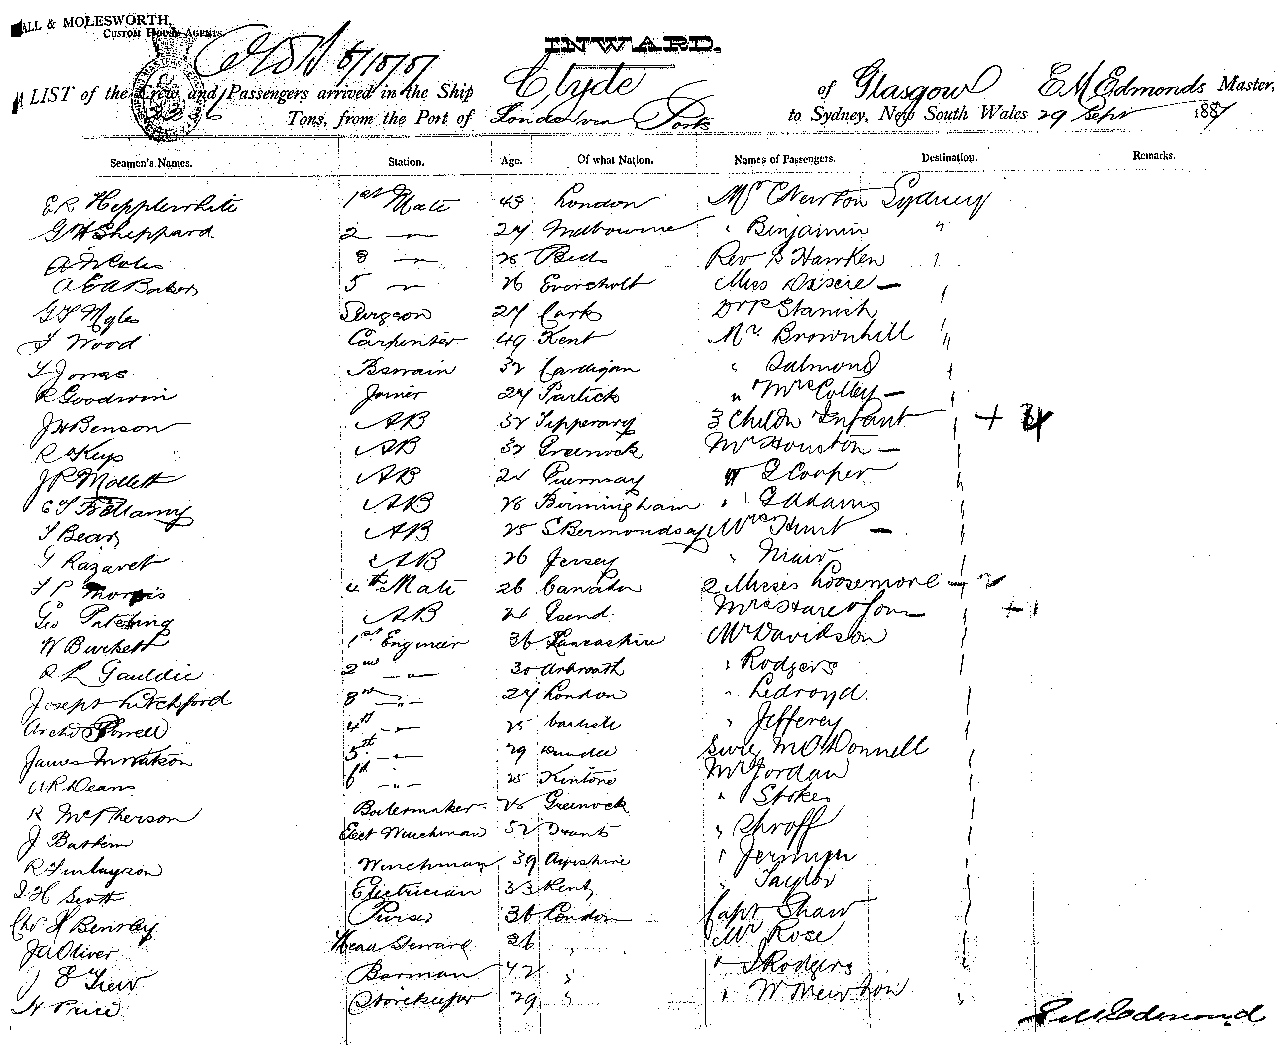 ALL & MOLESWORTH,
CUSTOM HOUSE AGENTS.
INWARD.
LIST of the Crew and Passengers arrived in the Ship Clyde of Glasgow E M Edmonds Master,
Tons, from the Port of London via Ports to Sydney, New South Wales 29 Sept 1887
Seamen's Names. Station. Age. Of what Nation. Names of Passengers. Destination. Remarks.
E R Hepplewhite 1st Mate 43 London Mr C Newton Sydney
G H Sheppard 2 — 27 Melbourne " Benjamin "
3 — Rev S Hawken
A E A Baker 5 — 26 Evershott Miss —
G F Myles Surgeon 27 Cork Dr P Stanish
F Wood Carpenter 49 Kent Mr Brownhill "
T Jones Boswain 32 Cardigan " Salmond
R Goodwin Joiner 27 Partick " Mrs Colley —
J W Benson AB 32 Tipperary 3 Childn Infant + 4
R Keys AB 32 Greenock Mr Houston —
J R Mollett AB Guernsay " G Cooper
E T Bellamy AB 26 Birmingham " G Adams
T Bear AB 25 S Bermondsay Mrs Hunt —
G Razavet AB 26 Jersey " Muir
T P Morris 4th Mate 26 Canada 2 Misses Loosemore — 2
Geo Patching AB Mrs Hare & Son + 1
W Burkett 1st Engineer 36 Lancashire Mr Davidson
R L Gauldie 2nd — 30 Arbroath " Rodgers
Joseph Litchford 3rd — 27 London " Ledroyd
Archd Powell 4th — 25 Carlisle " Jefferey
James M Watson 5th — 29 Dundee McDonnell
W R Deans 6th — 25 Kintore Mr Jordan
R McPherson Boilermaker 26 Greenock " Stokes
J Baskem Elect Winchman 52 " Shroff
R Finlayson Winchman 39 Ayrshire " Jermyn
J H Scott Electrician 33 Kent " Taylor
Chs H Bensley Purser 36 London Capt Shaw
J A Oliver Head Steward 36 " Mr Rose
J E Trew Barman 42 " " J Rodgers
H Price Storekeeper 29 " " W Newton "
E M Edmond